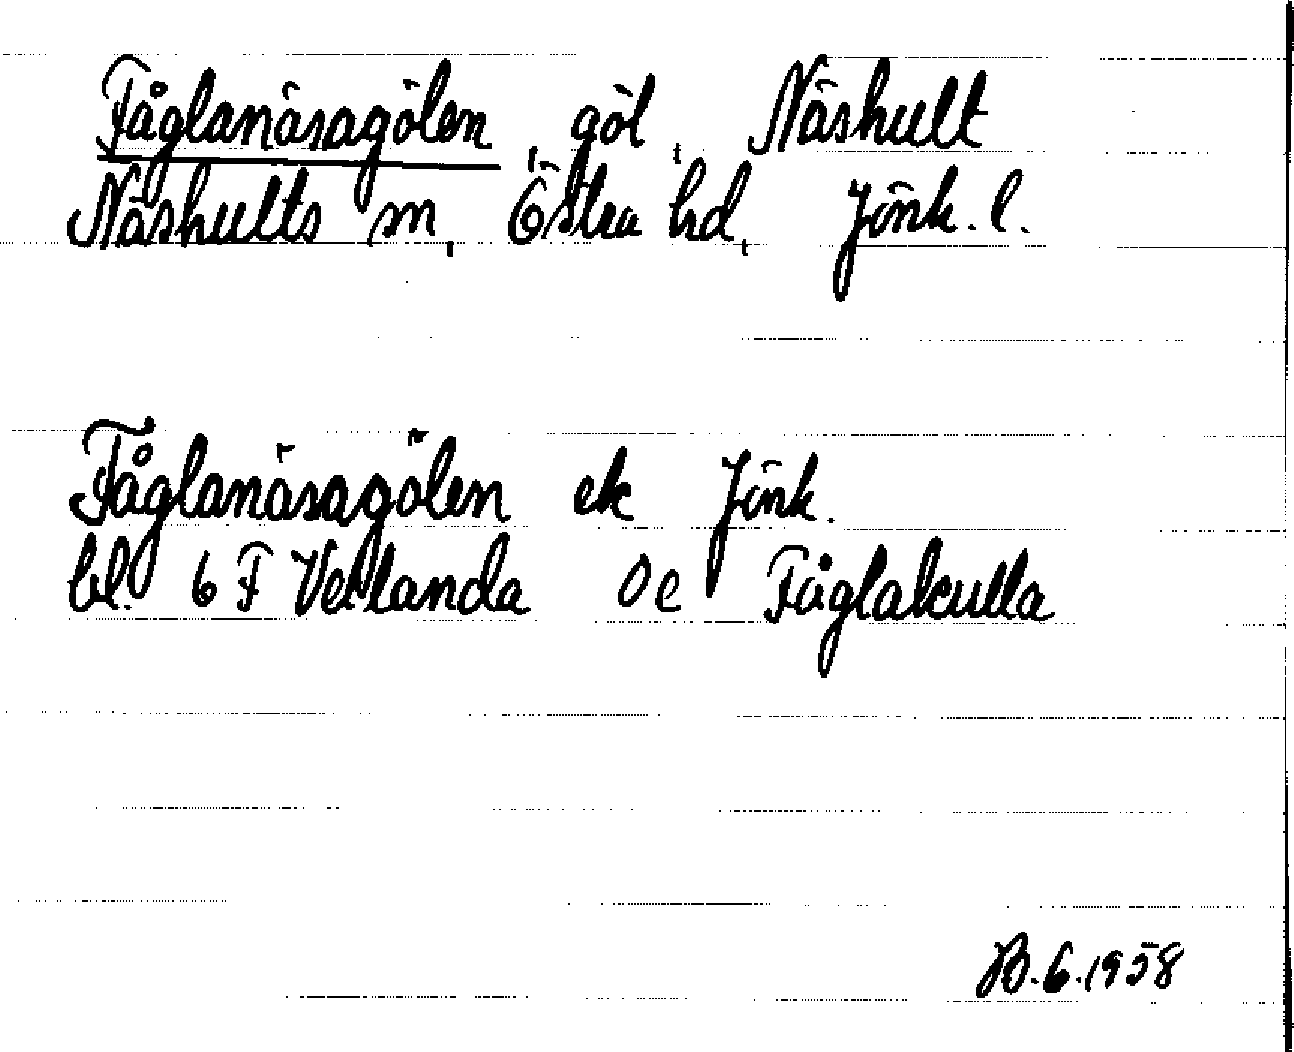 Fåglanäsagölen, göl, Näshult
Näshults sn, Östra hd, Jönk. l.
Fåglanäsagölen ek Jönk.
bl. 6 F Vetlanda Oe Fåglakulla
B.6.1958